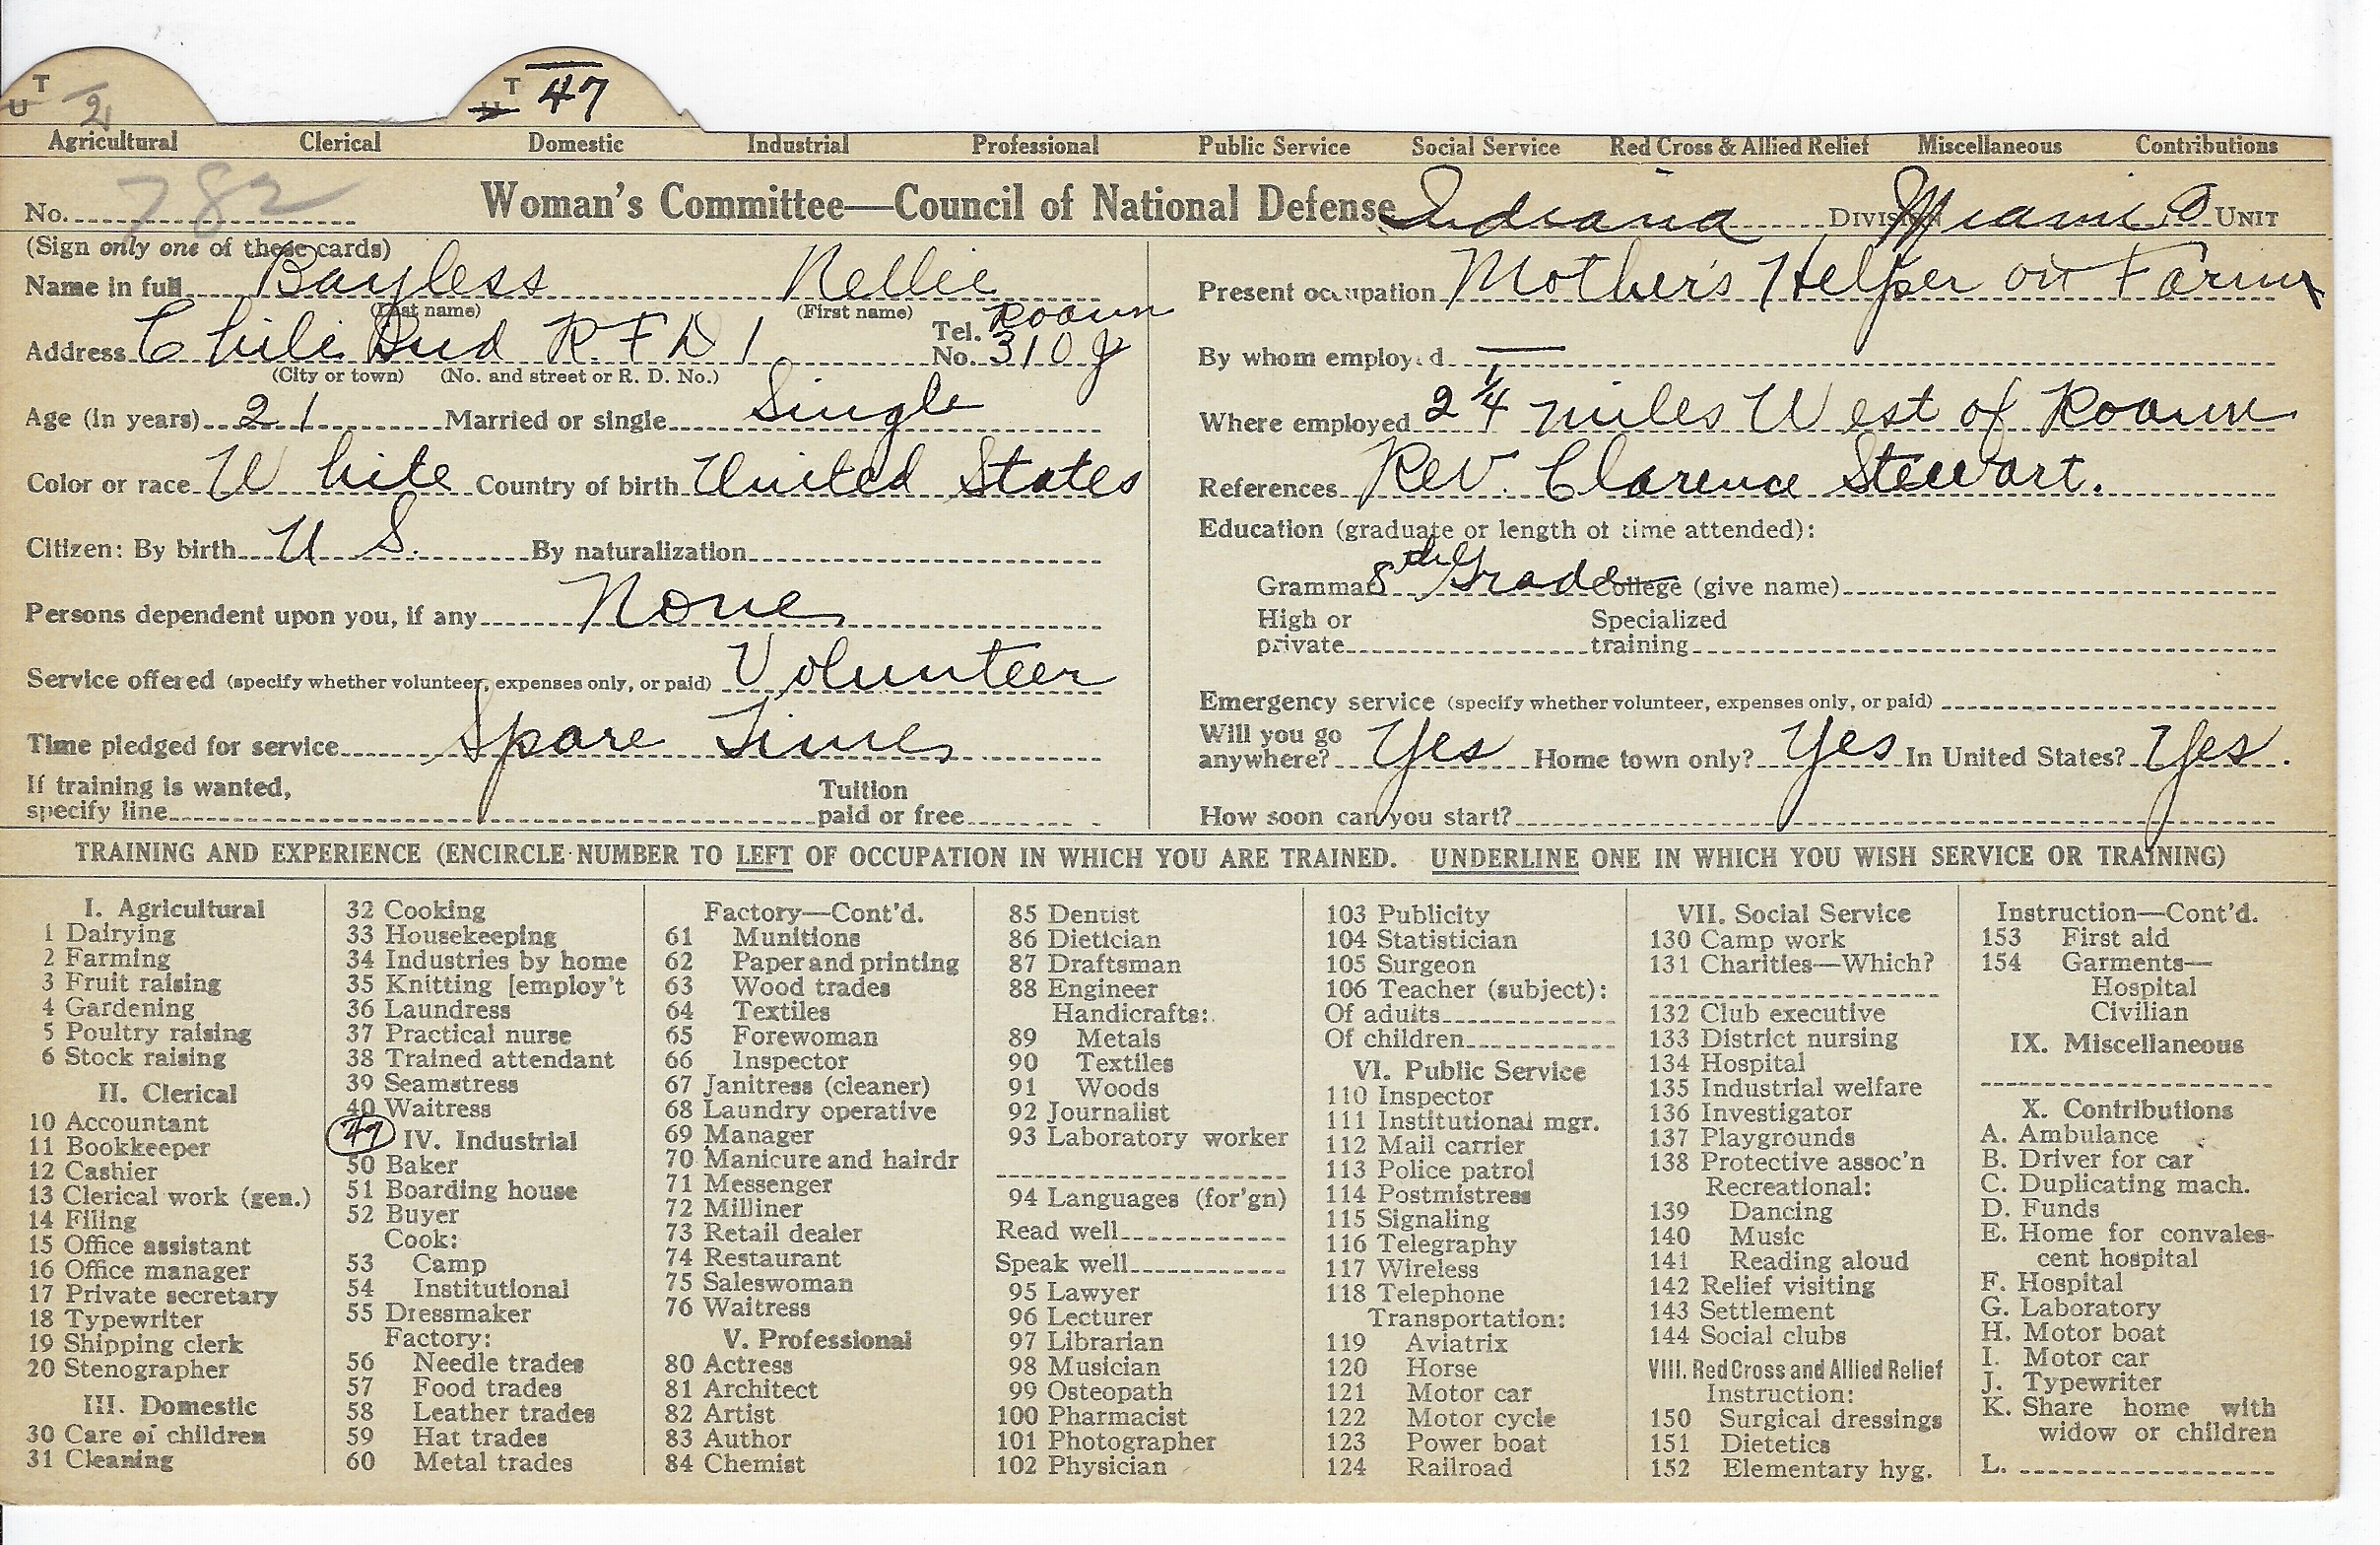 T
U 2
T
U 47
Agricultural Clerical Domestic Industrial Professional Public Service Social Service Red Cross & Allied Relief Miscellaneous Contributions
No. 782 Woman's Committee—Council of National Defense Indiana DIVISION Miami Co UNIT
(Sign only one of these cards)
Name in full Bayless Nellie
(Last name) (First name)
Address Chili Ind R.F.D 1 Tel. No. Roann 310 J
(City or town) (No. and street or R. D. No.)
Age (in years) 21 Married or single Single
Color or race White Country of birth United States
Citizen: By birth U S. By naturalization
Persons dependent upon you, if any None
Service offered (specify whether volunteer, expenses only, or paid) Volunteer
Time pledged for service Spare Time
If training is wanted, specify line Tuition paid or free
Present occupation Mother's Helper on Farm
By whom employed —
Where employed 2 1/4 miles West of Roann
References Rev. Clarence Stewart.
Education (graduate or length of time attended):
Grammar 8th Grade College (give name)
High or private Specialized training
Emergency service (specify whether volunteer, expenses only, or paid)
Will you go anywhere? Yes Home town only? Yes In United States? Yes.
How soon can you start?
TRAINING AND EXPERIENCE (ENCIRCLE NUMBER TO LEFT OF OCCUPATION IN WHICH YOU ARE TRAINED. UNDERLINE ONE IN WHICH YOU WISH SERVICE OR TRAINING)
I. Agricultural
1 Dairying
2 Farming
3 Fruit raising
4 Gardening
5 Poultry raising
6 Stock raising
II. Clerical
10 Accountant
11 Bookkeeper
12 Cashier
13 Clerical work (gen.)
14 Filing
15 Office assistant
16 Office manager
17 Private secretary
18 Typewriter
19 Shipping clerk
20 Stenographer
III. Domestic
30 Care of children
31 Cleaning
32 Cooking
33 Housekeeping
34 Industries by home
35 Knitting [employ't
36 Laundress
37 Practical nurse
38 Trained attendant
39 Seamstress
40 Waitress
47 IV. Industrial
50 Baker
51 Boarding house
52 Buyer
Cook:
53 Camp
54 Institutional
55 Dressmaker
Factory:
56 Needle trades
57 Food trades
58 Leather trades
59 Hat trades
60 Metal trades
Factory—Cont'd.
61 Munitions
62 Paper and printing
63 Wood trades
64 Textiles
65 Forewoman
66 Inspector
67 Janitress (cleaner)
68 Laundry operative
69 Manager
70 Manicure and hairdr
71 Messenger
72 Milliner
73 Retail dealer
74 Restaurant
75 Saleswoman
76 Waitress
V. Professional
80 Actress
81 Architect
82 Artist
83 Author
84 Chemist
85 Dentist
86 Dietician
87 Draftsman
88 Engineer
Handicrafts:
89 Metals
90 Textiles
91 Woods
92 Journalist
93 Laboratory worker
94 Languages (for'gn)
Read well
Speak well
95 Lawyer
96 Lecturer
97 Librarian
98 Musician
99 Osteopath
100 Pharmacist
101 Photographer
102 Physician
103 Publicity
104 Statistician
105 Surgeon
106 Teacher (subject):
Of adults
Of children
VI. Public Service
110 Inspector
111 Institutional mgr.
112 Mail carrier
113 Police patrol
114 Postmistress
115 Signaling
116 Telegraphy
117 Wireless
118 Telephone
Transportation:
119 Aviatrix
120 Horse
121 Motor car
122 Motor cycle
123 Power boat
124 Railroad
VII. Social Service
130 Camp work
131 Charities—Which?
132 Club executive
133 District nursing
134 Hospital
135 Industrial welfare
136 Investigator
137 Playgrounds
138 Protective assoc'n
Recreational:
139 Dancing
140 Music
141 Reading aloud
142 Relief visiting
143 Settlement
144 Social clubs
VIII. Red Cross and Allied Relief
Instruction:
150 Surgical dressings
151 Dietetics
152 Elementary hyg.
Instruction—Cont'd.
153 First aid
154 Garments—
Hospital
Civilian
IX. Miscellaneous
X. Contributions
A. Ambulance
B. Driver for car
C. Duplicating mach.
D. Funds
E. Home for convales-
cent hospital
F. Hospital
G. Laboratory
H. Motor boat
I. Motor car
J. Typewriter
K. Share home with
widow or children
L.